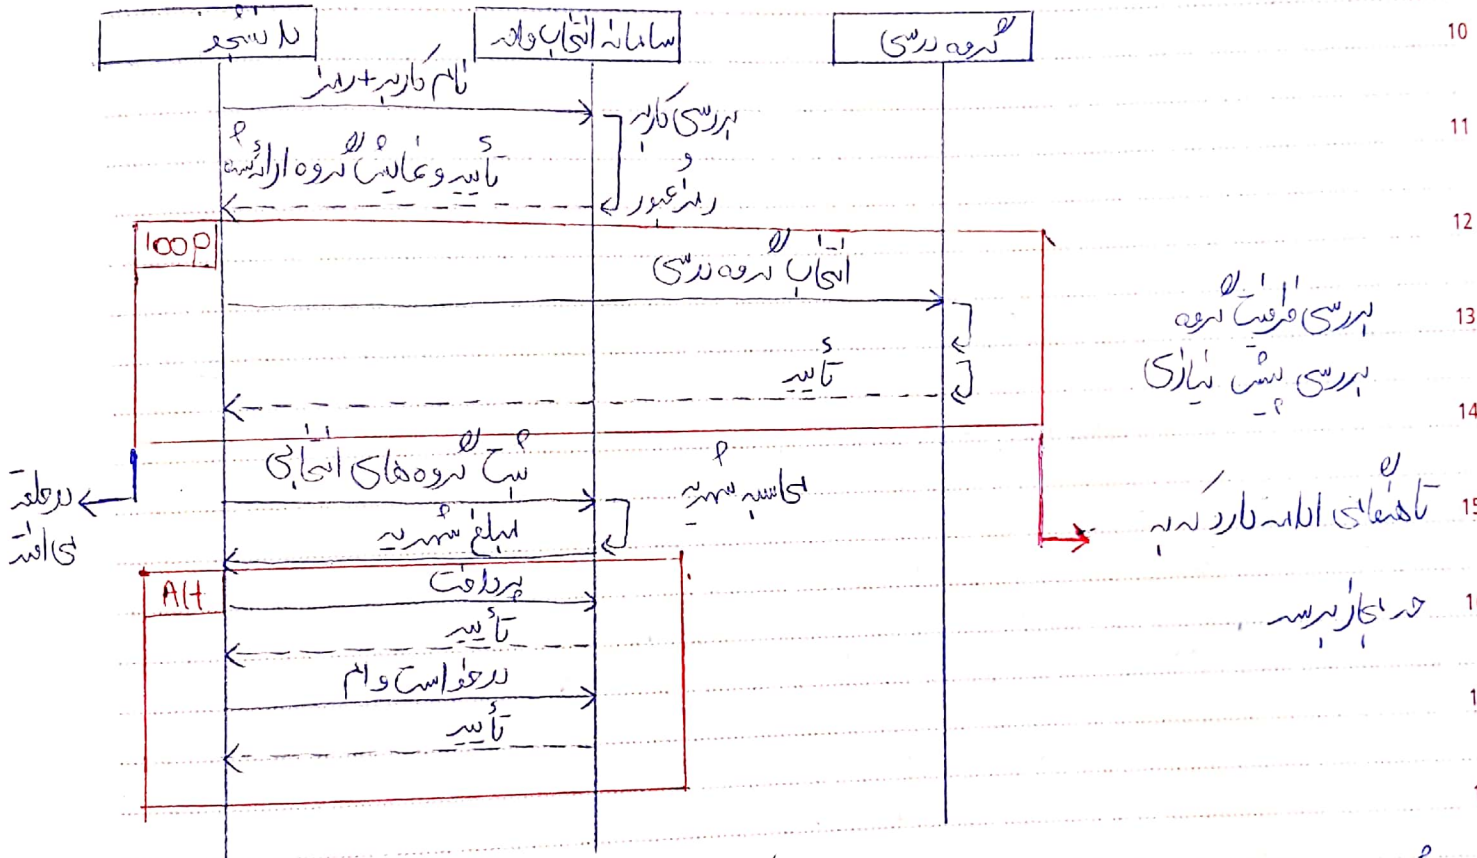 دانشجو
سامانه انتخاب واحد
گروه درسی
نام کاربر + رمز
بررسی کاربر
و
رمز عبور
تأیید و نمایش گروه ارائه شده
loop
انتخاب گروه درسی
بررسی ظرفیت گروه
بررسی پیش نیازی
تأیید
ثبت گروه های انتخابی
محاسبه شهریه
مبلغ شهریه
در حلقه
می افتد
تا هنگامی ادامه دارد که به
حد مجاز برسد.
Alt
پرداخت
تأیید
درخواست وام
تأیید
10
11
12
13
14